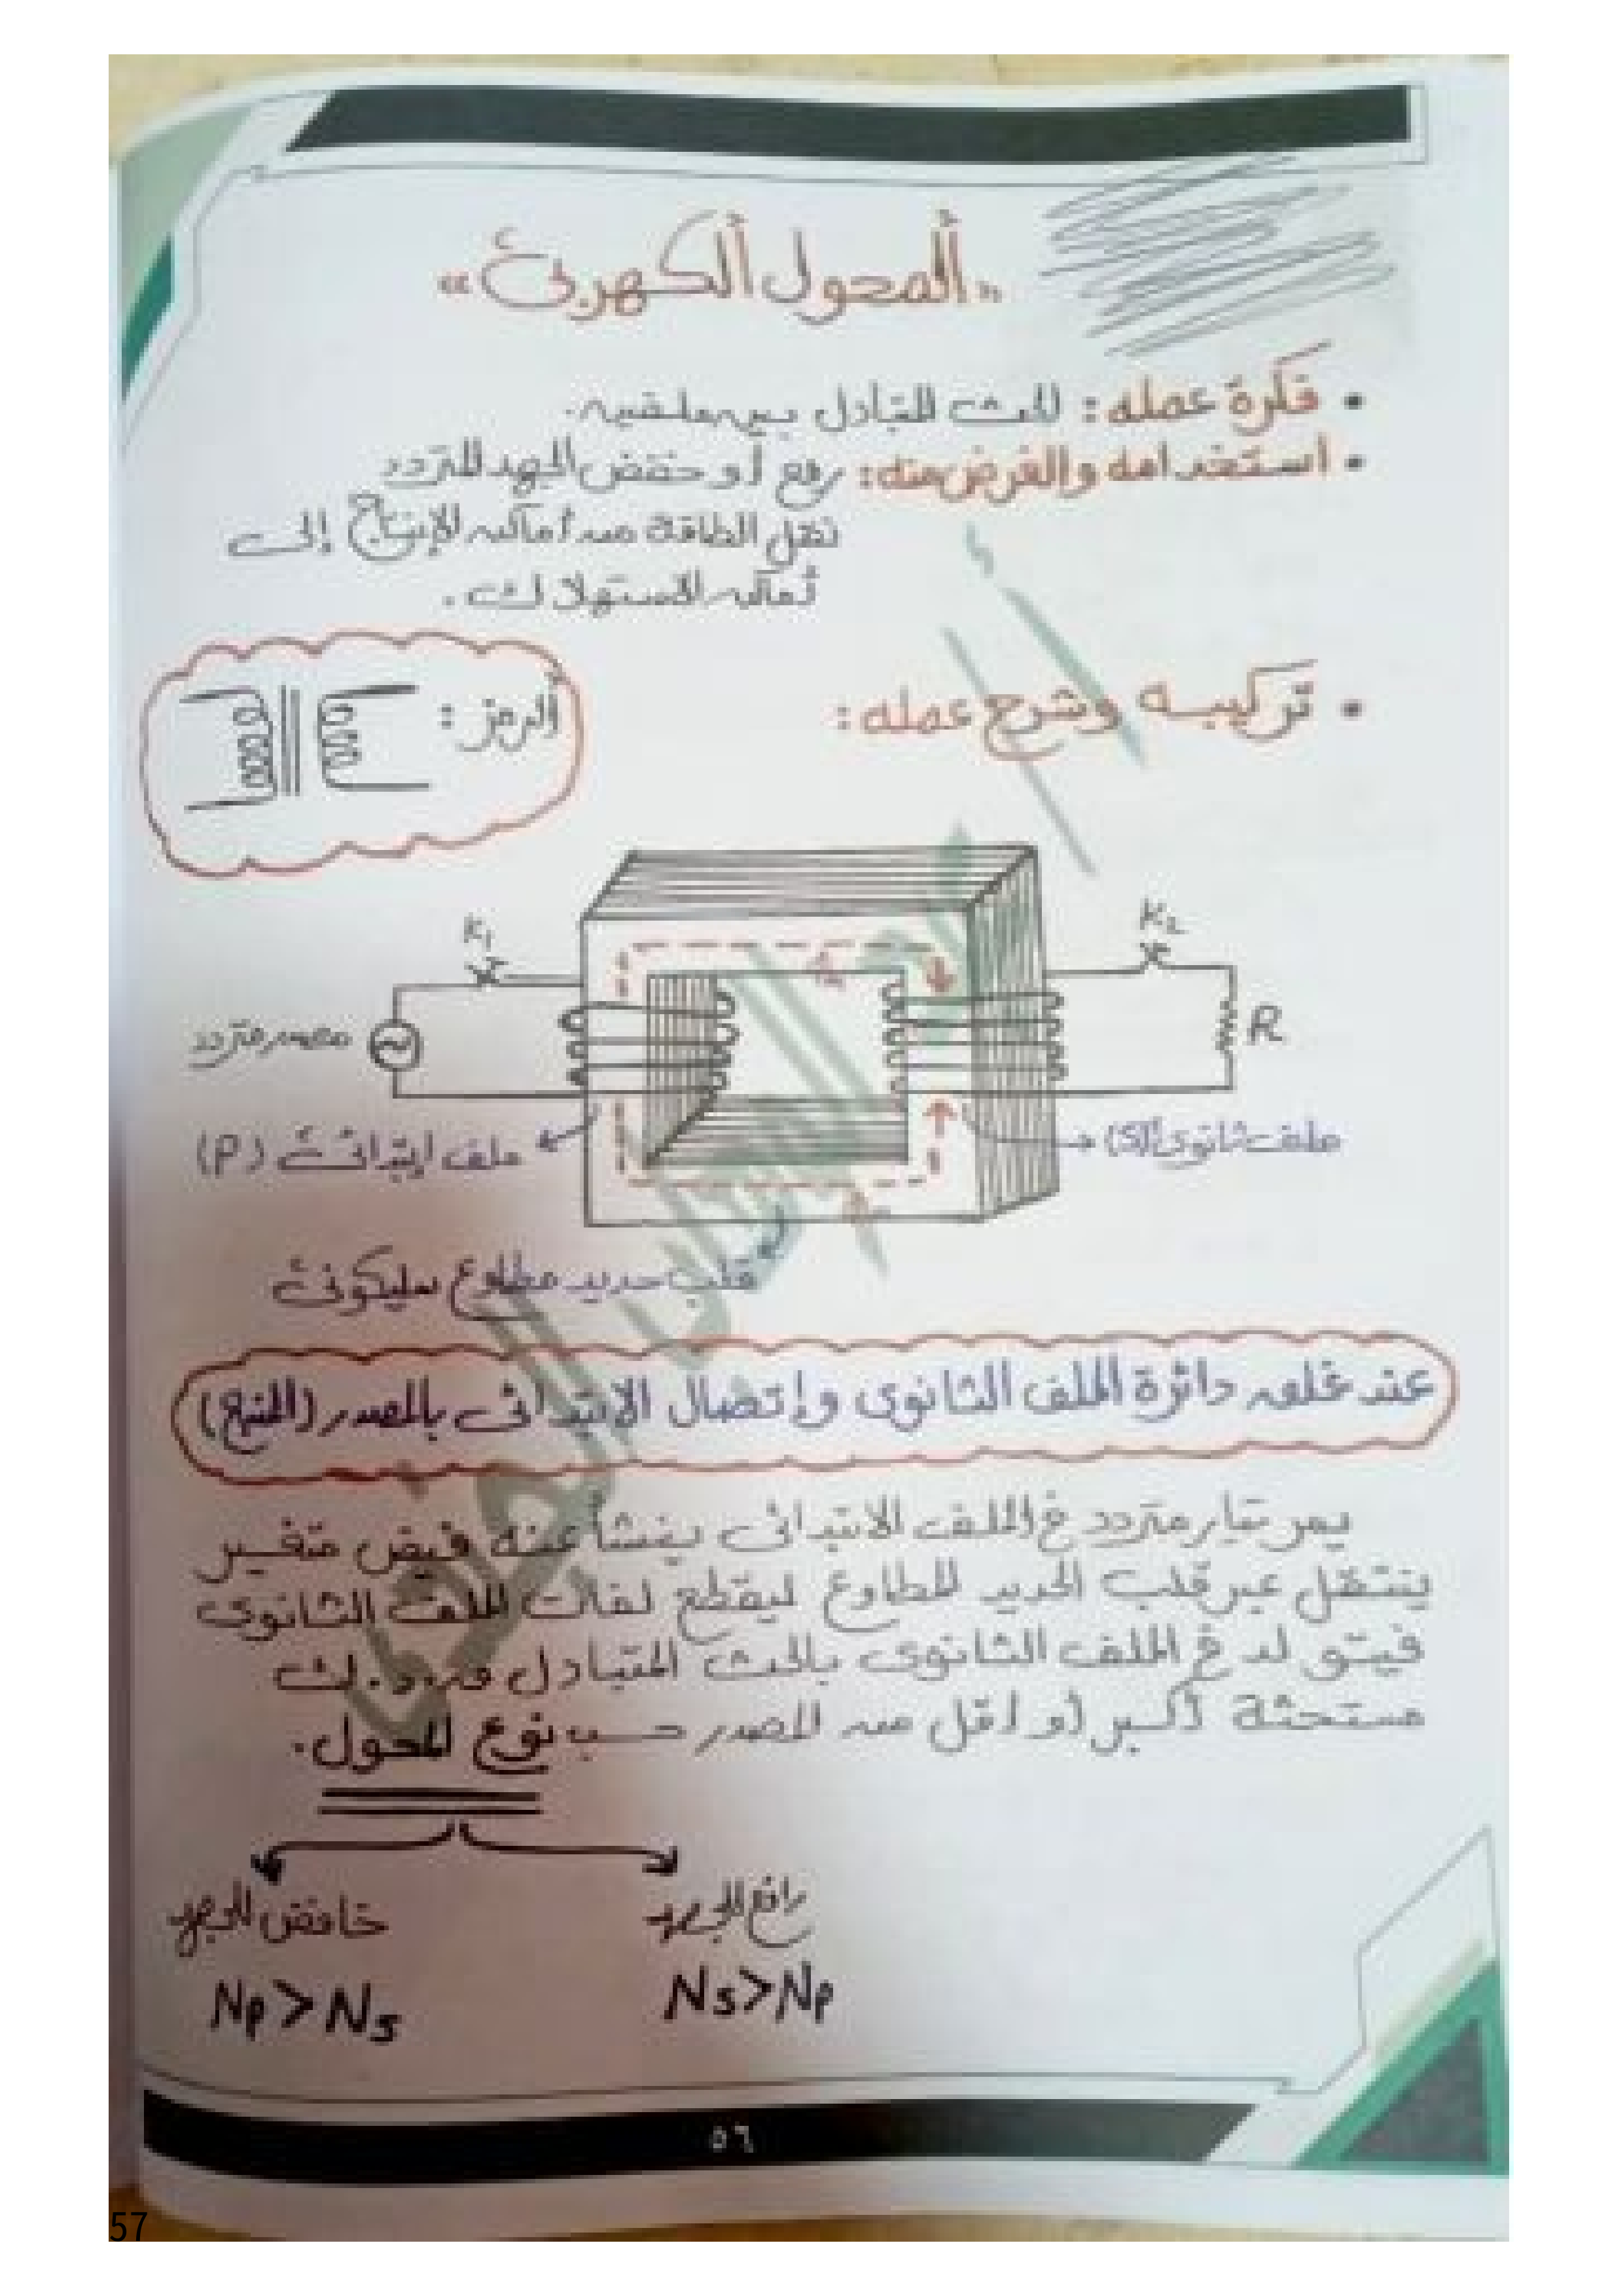 "المحول الكهربى"
• فكرة عمله: الحث المتبادل بين ملفين.
• استخدامه والغرض منه: رفع أو خفض الجهد المتردد
نقل الطاقة من أماكن الإنتاج إلى
أماكن الاستهلاك.
• تركيبه وشرح عمله:
الرمز:
K₁
K₂
مصدر متردد
R
ملف ابتدائى (P)
ملف ثانوى (S)
قلب حديد مطاوع سليكونى
عند غلق دائرة الملف الثانوى وإتصال الابتدائى بالمصدر (المنبع)
يمر تيار متردد فى الملف الابتدائى ينشأ عنه فيض متغير
ينتقل عبر قلب الحديد المطاوع ليقطع لفات الملف الثانوى
فيتولد فى الملف الثانوى بالحث المتبادل ق.د.ك
مستحثة أكبر أو أقل من المصدر حسب نوع المحول.
رافع للجهد
خافض للجهد
Ns>Np
Np>Ns
٥٦
57